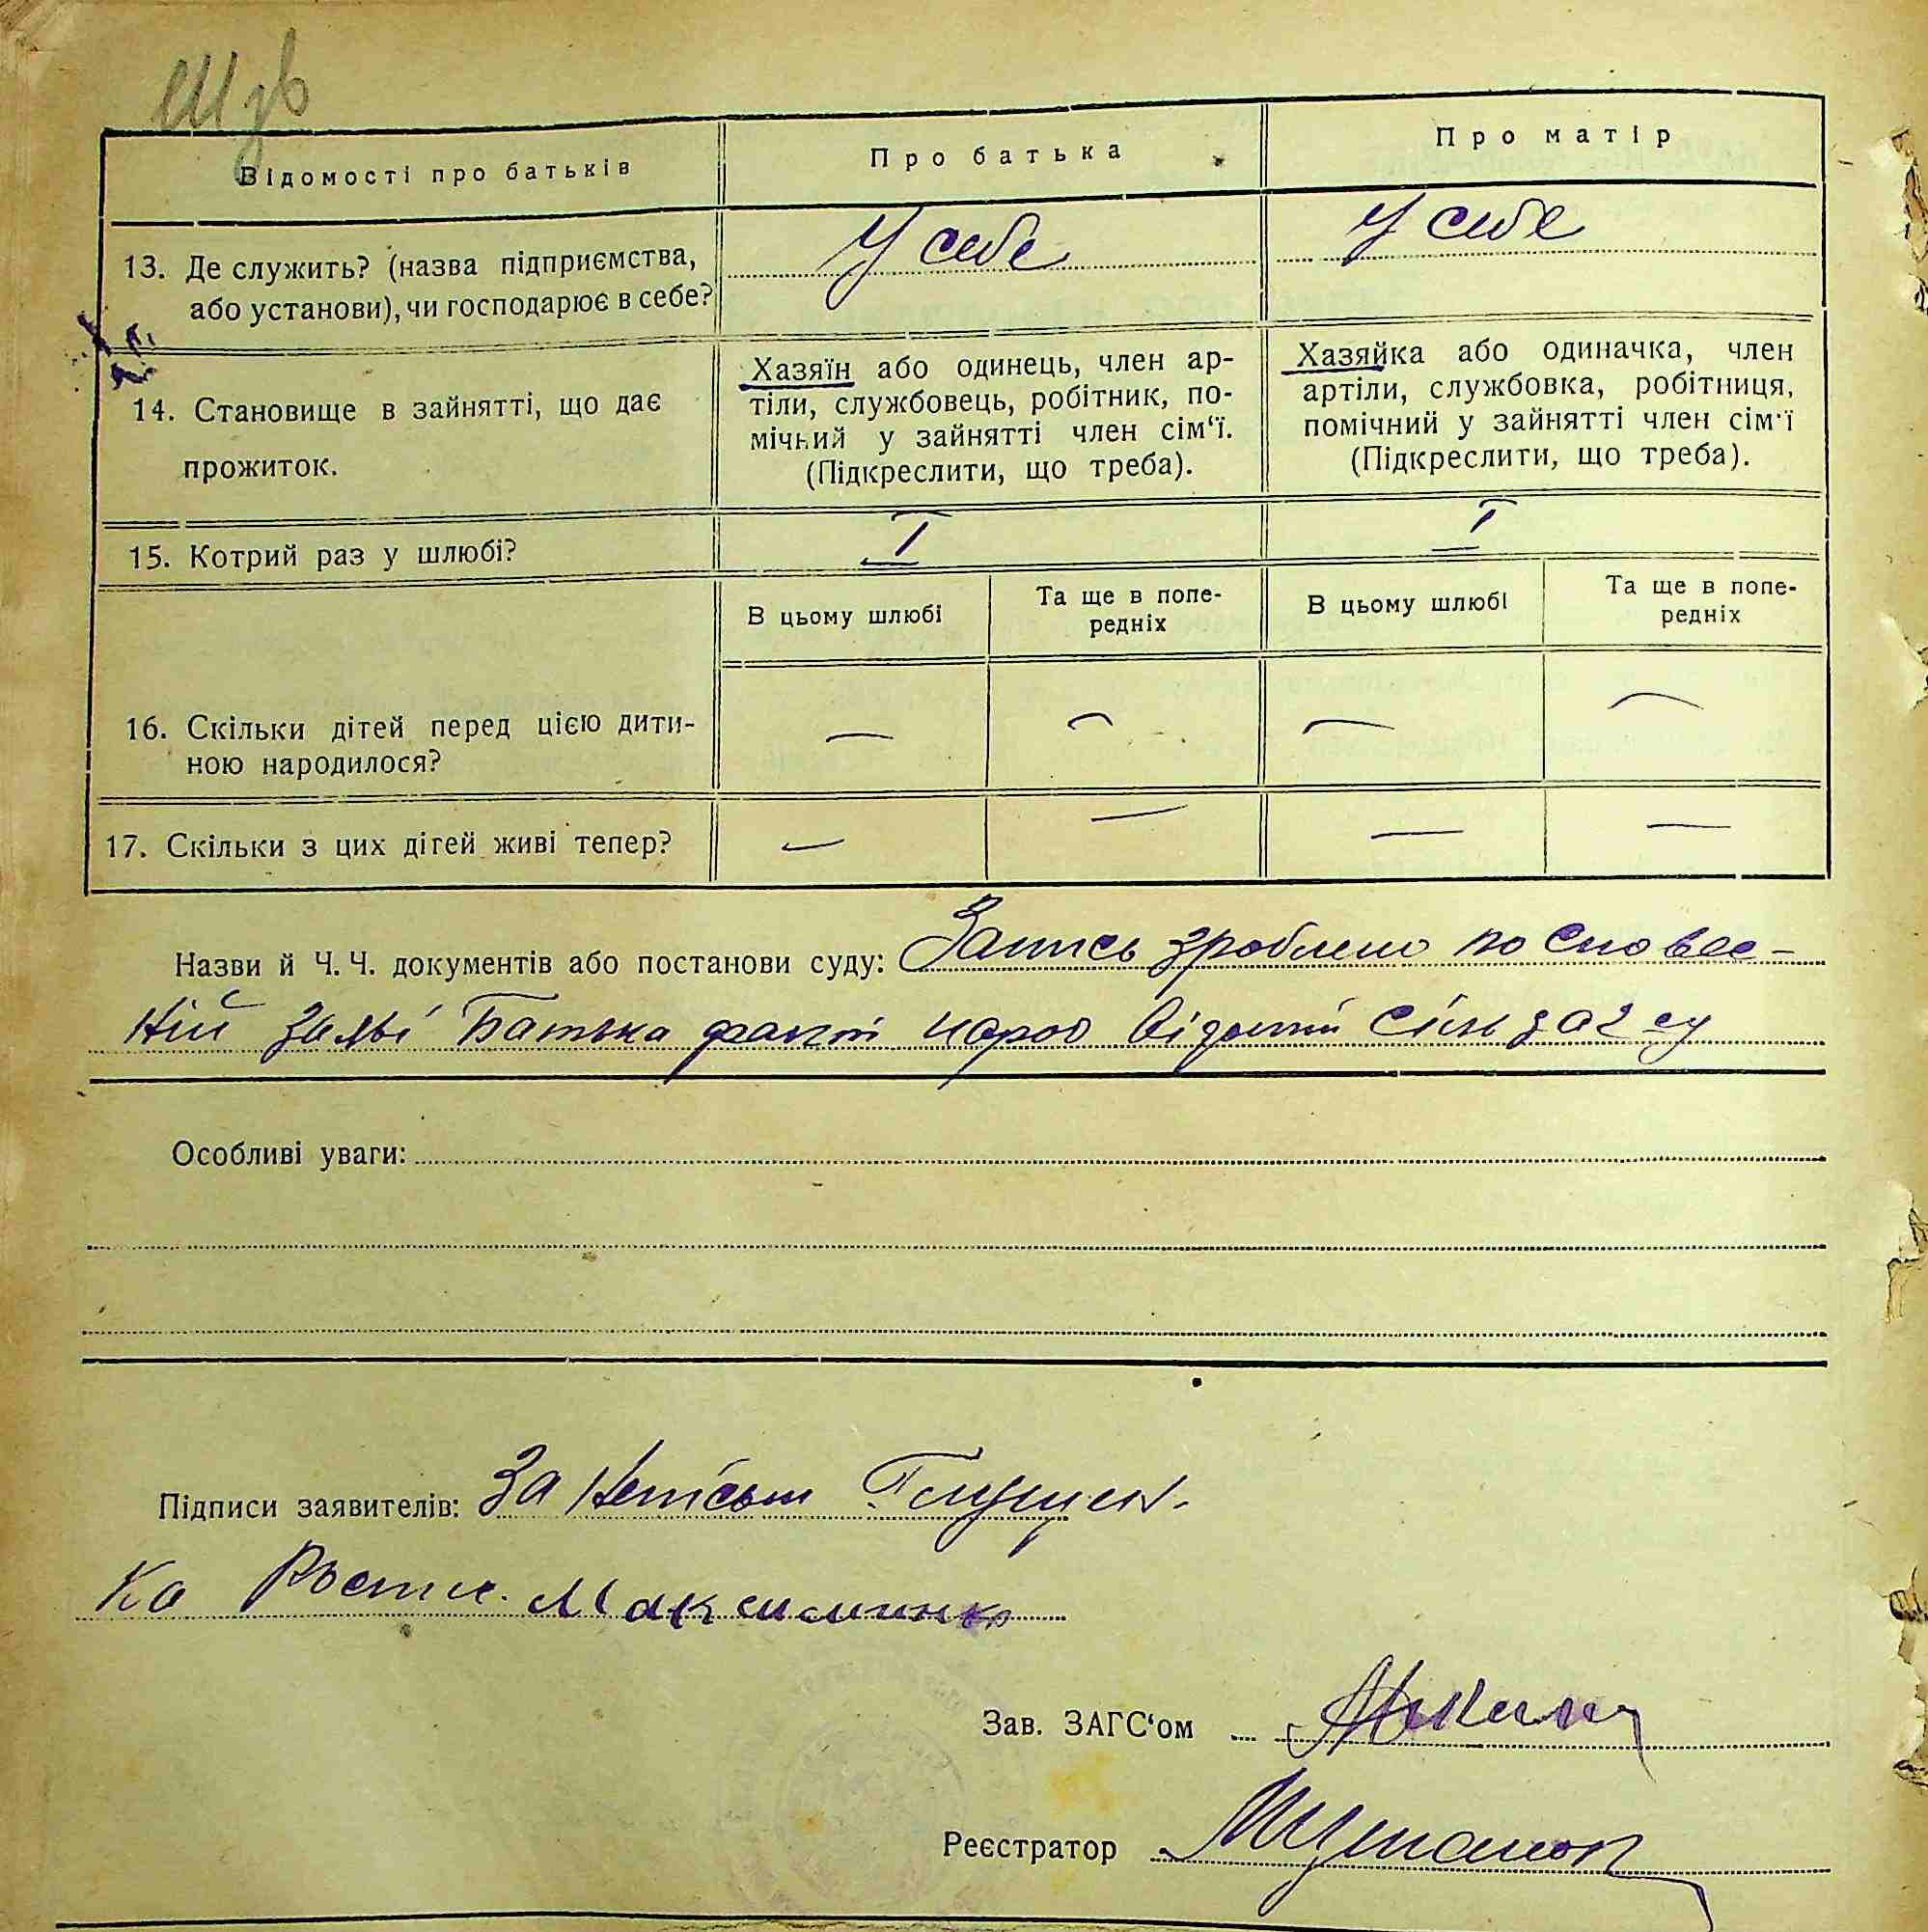 Відомості про батьків
Про батька
Про матір
13. Де служить? (назва підприємства,
або установи), чи господарює в себе?
У себе
У себе
14. Становище в зайнятті, що дає
прожиток.
Хазяїн або одинець, член ар-
тіли, службовець, робітник, по-
мічний у зайнятті член сім‘ї.
(Підкреслити, що треба).
Хазяйка або одиначка, член
артіли, службовка, робітниця,
помічний у зайнятті член сім‘ї
(Підкреслити, що треба).
15. Котрий раз у шлюбі?
I
I
В цьому шлюбі
Та ще в попе-
редніх
В цьому шлюбі
Та ще в попе-
редніх
16. Скільки дітей перед цією дити-
ною народилося?
— — — —
17. Скільки з цих дітей живі тепер?
— — — —
Назви й Ч. Ч. документів або постанови суду: Запись зроблено по словес-
ній заяві Батька факт народ відомий
Особливі уваги:
Підписи заявителів: За
ка
Зав. ЗАГС‘ом
Реєстратор